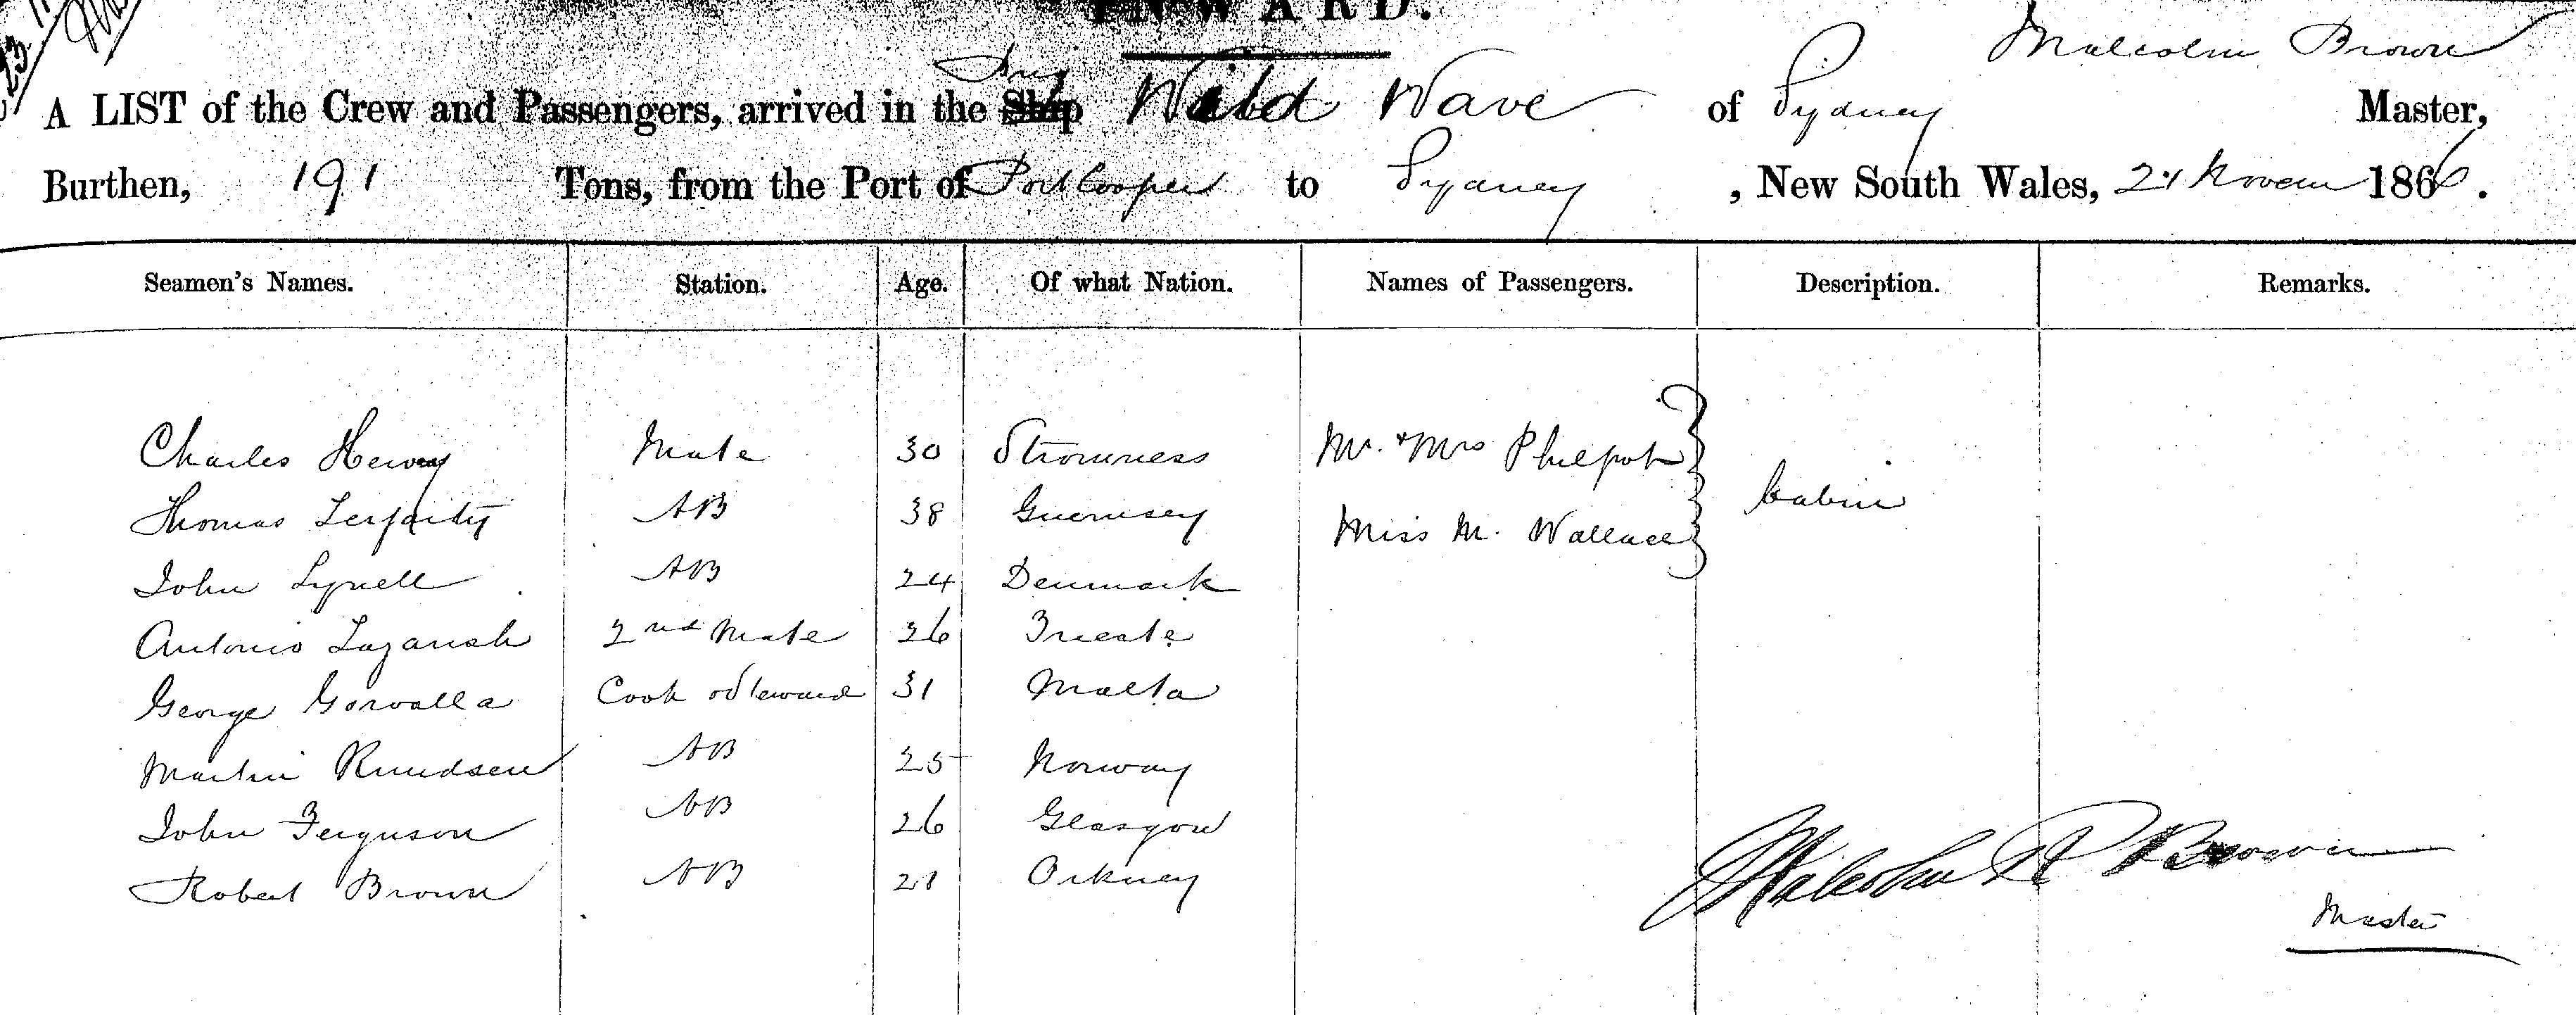 INWARD.
Malcolm Brown
Brig
A LIST of the Crew and Passengers, arrived in the Ship Wild Wave of Sydney Master,
Burthen, 191 Tons, from the Port of Port Cooper to Sydney , New South Wales, 21 Novem 1866.
Seamen's Names. Station. Age. Of what Nation. Names of Passengers. Description. Remarks.
Charles Hervey Mate 30 Stromness Mr. & Mrs Philpot
Thomas AB 38 Guernsey Miss M. Wallace Cabin
John Lynell AB 24 Denmark
Antonio 2nd Mate 26 Trieste
George Gorvalla Cook & Steward 31 Malta
Martin Knudsen AB 25 Norway
John Ferguson AB 26 Glasgow
Robert Brown AB 21 Orkney
Malcolm R Brown
Master